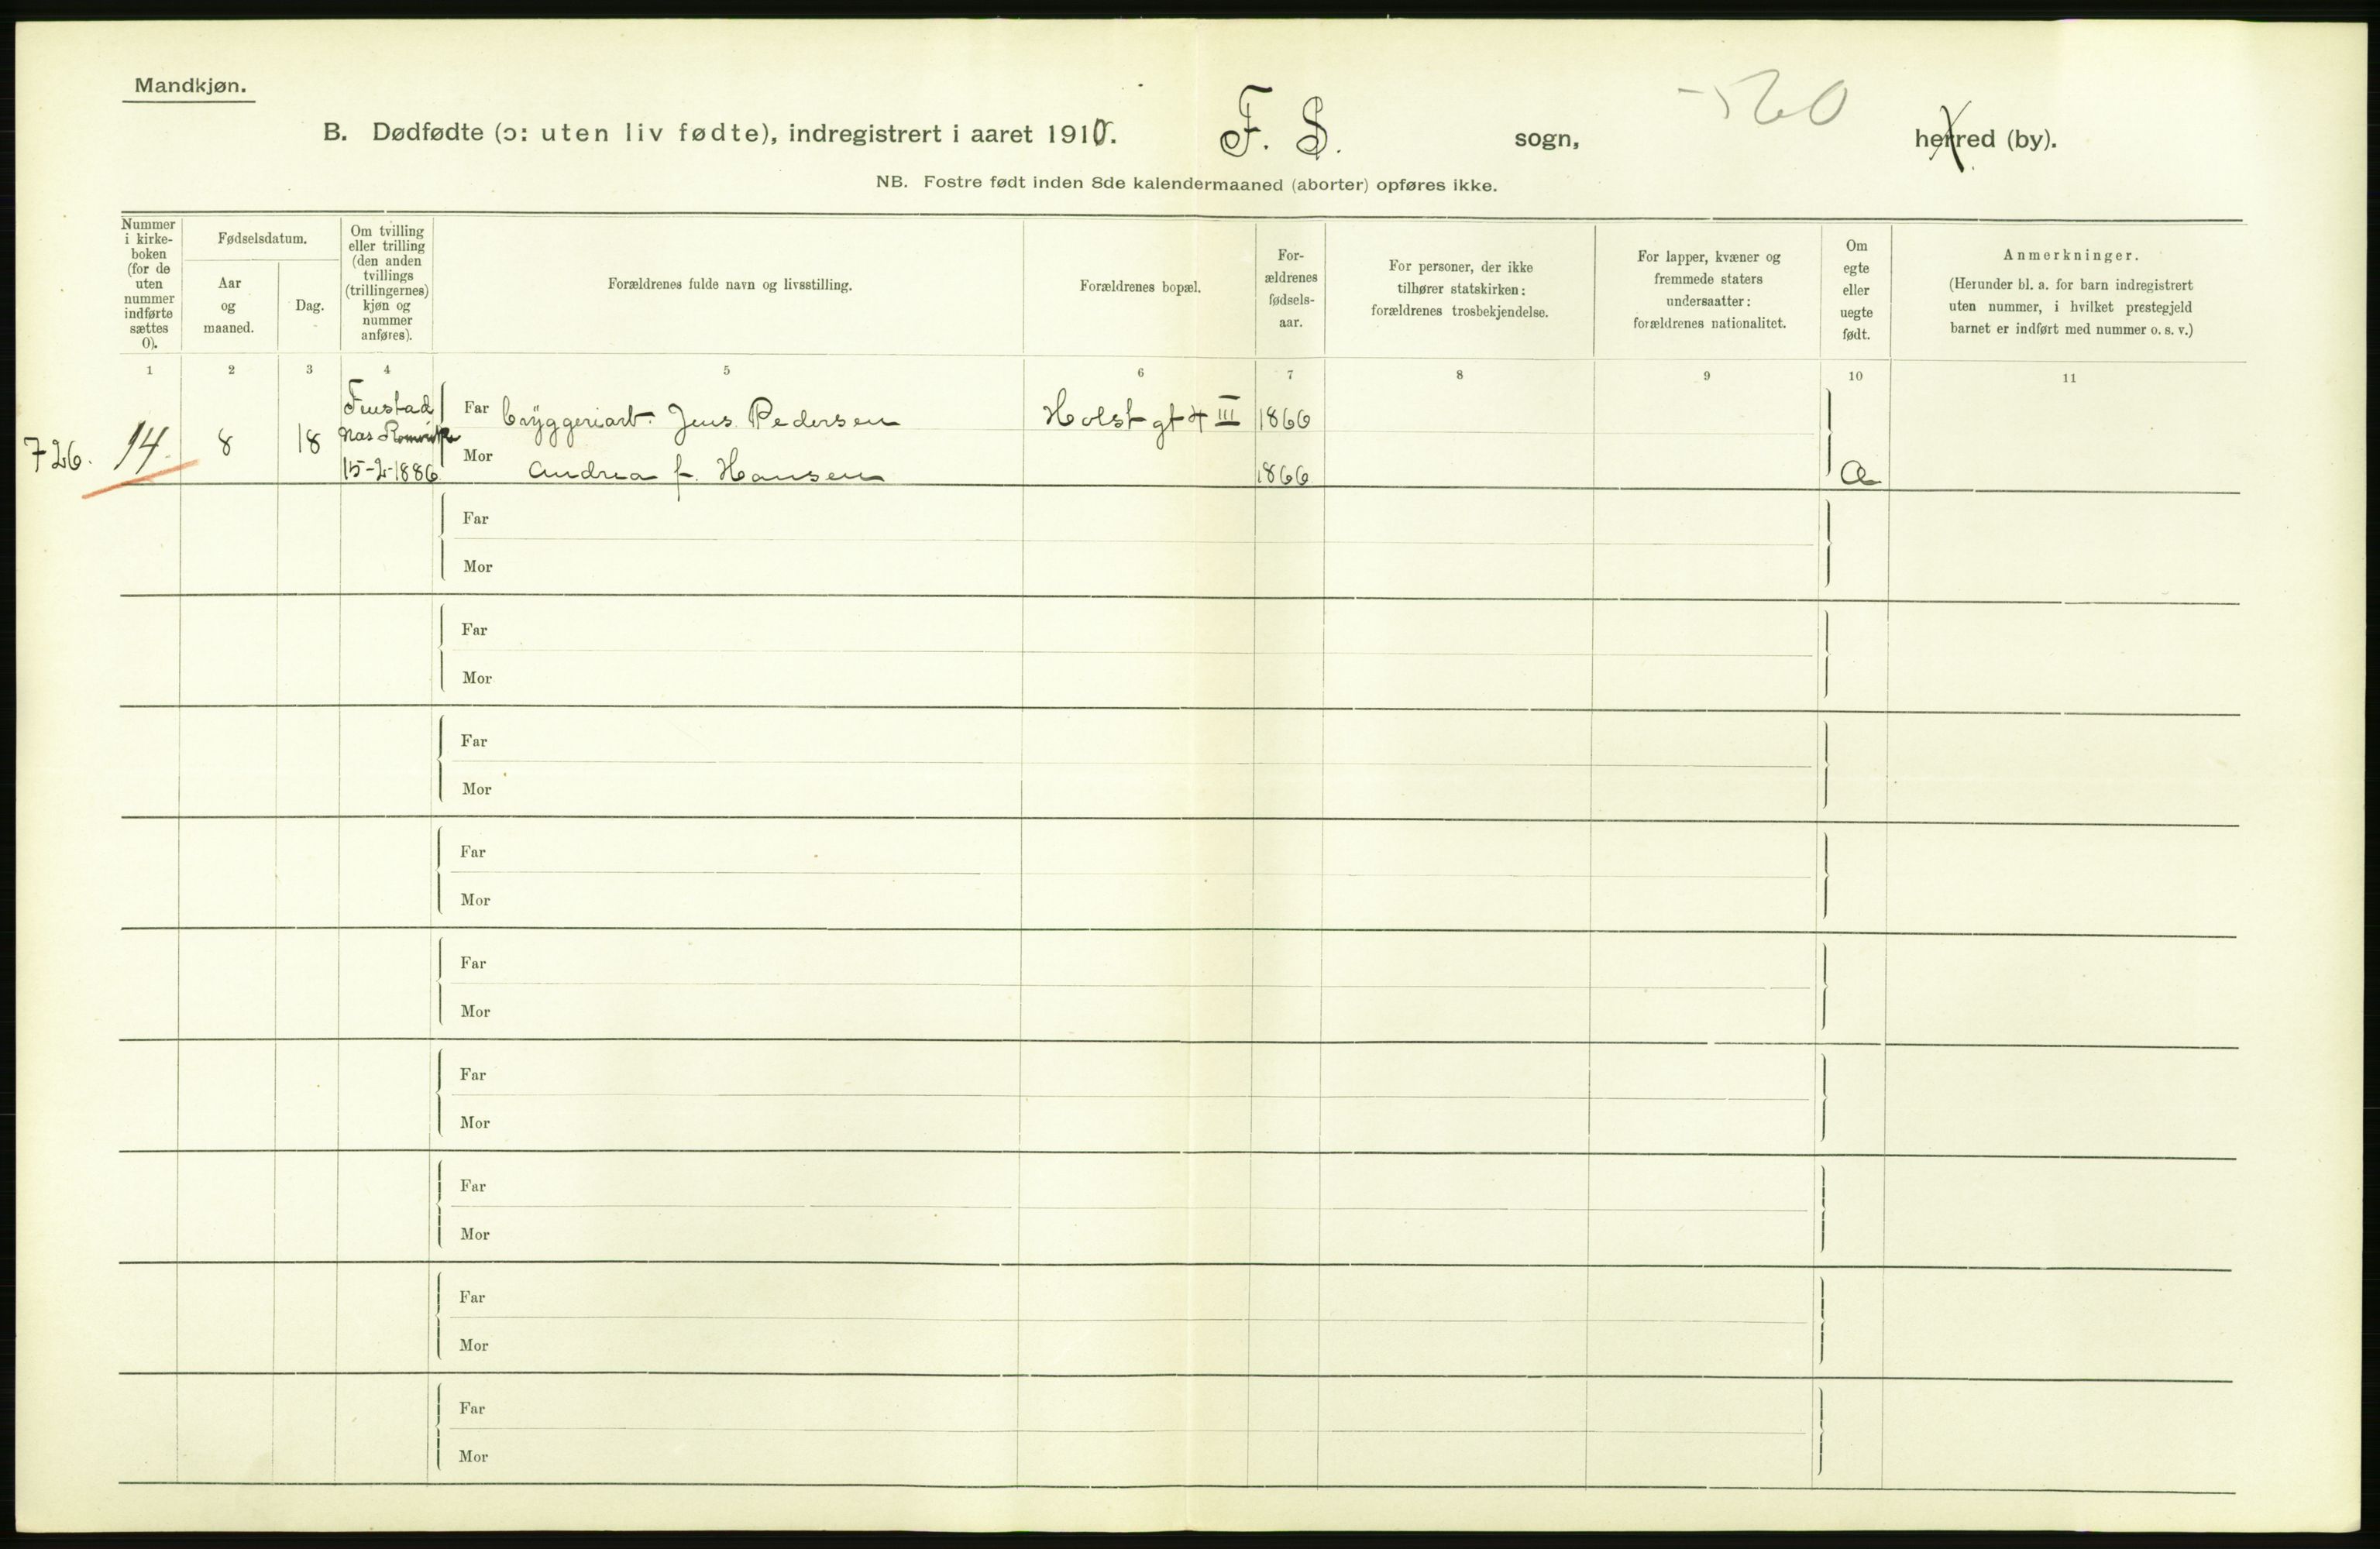 Mandkjøn.
B. Dødfødte (ɔ: uten liv fødte), indregistrert i aaret 1910. F. S. sogn, herred (by).
NB. Fostre født inden 8de kalendermaaned (aborter) opføres ikke.
Nummer
i kirke-
boken
(for de
uten
nummer
indførte
sættes
0).
Fødselsdatum.
Aar
og
maaned.
Dag.
Om tvilling
eller trilling
(den anden
tvillings
(trillingernes)
kjøn og
nummer
anføres).
Forældrenes fulde navn og livsstilling.
Forældrenes bopæl.
For-
ældrenes
fødsels-
aar.
For personer, der ikke
tilhører statskirken:
forældrenes trosbekjendelse.
For lapper, kvæner og
fremmede staters
undersaatter:
forældrenes nationalitet.
Om
egte
eller
uegte
født.
Anmerkninger.
(Herunder bl. a. for barn indregistrert
uten nummer, i hvilket prestegjeld
barnet er indført med nummer o. s. v.)
1 2 3 4 5 6 7 8 9 10 11
Far bryggeriarb. Jens Pedersen Holst gt 4 III 1866
726. 14. 8 18 Nas Romerike
Mor Andrea f. Hansen 1866 Æ
15-2-1886
Far
Mor
Far
Mor
Far
Mor
Far
Mor
Far
Mor
Far
Mor
Far
Mor
Far
Mor
Far
Mor